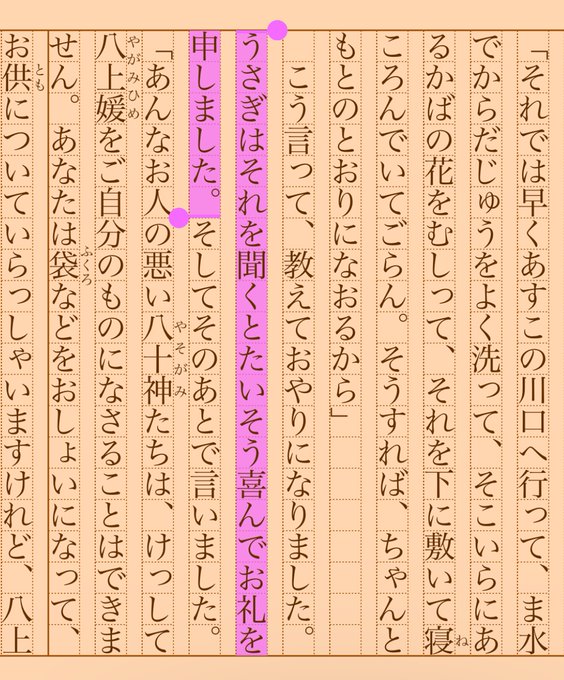 「それでは早くあすこの川口へ行って、ま水
でからだじゅうをよく洗って、そこいらにあ
るかばの花をむしって、それを下に敷いて寝
ね
ころんでいてごらん。そうすれば、ちゃんと
もとのとおりになおるから」
こう言って、教えておやりになりました。
うさぎはそれを聞くとたいそう喜んでお礼を
申しました。そしてそのあとで言いました。
「あんなお人の悪い八十神たちは、けっして
やそがみ
八上媛をご自分のものになさることはできま
やがみひめ
せん。あなたは袋などをおしょいになって、
ふくろ
お供についていらっしゃいますけれど、八上
とも